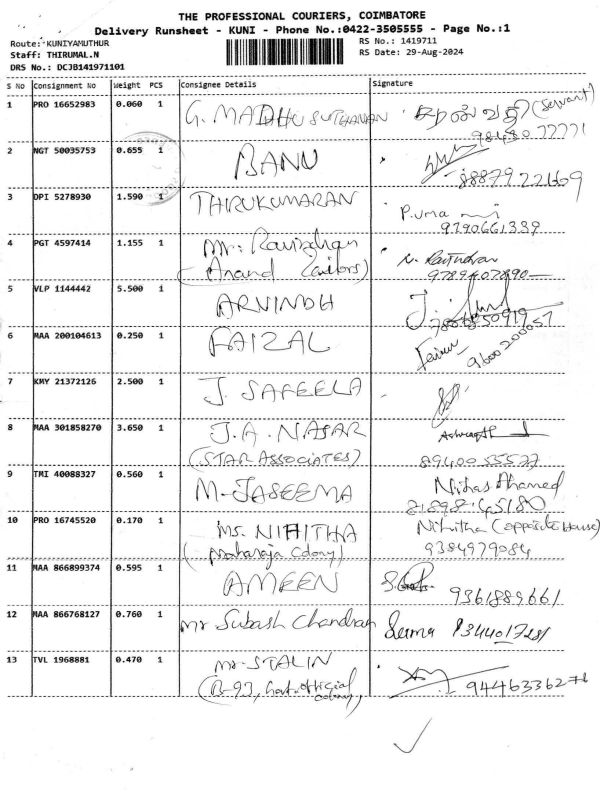 THE PROFESSIONAL COURIERS, COIMBATORE
Delivery Runsheet - KUNI - Phone No.:0422-3505555 - Page No.:1
Route: KUNIYAMUTHUR RS No.: 1419711
Staff: THIRUMAL.N RS Date: 29-Aug-2024
DRS No.: DCJB141971101
S No Consignment No Weight PCS Consignee Details Signature
1 PRO 16652983 0.060 1 G. MADHU SUTHANAN (Servant)
2 NGT 50035753 0.655 1 BANU
3 DPI 5278930 1.590 1 THIRUKUMARAN P.uma
9790661339
4 PGT 4597414 1.155 1 Mr. Ravindran
(Anand
9789407890
5 VLP 1144442 5.500 1 ARVINDH
6 MAA 200104613 0.250 1 FAIZAL
9600200057
7 KMY 21372126 2.500 1 J. SAFEELA
8 MAA 301858270 3.650 1 J.A. NASAR
(STAR ASSOCIATES)
9 TMI 40088327 0.560 1 M. JASEEMA Nihas Ahamed
10 PRO 16745520 0.170 1 MS. NIHITHA Nihitha (opposite house)
(Maharaja Colony) 9384979084
11 MAA 866899374 0.595 1 AMEEN 9361889661
12 MAA 866768127 0.760 1 Mr Subash Chandran
13 TVL 1968881 0.470 1 Mr. STALIN
(B-93, Govt. official
colony) 9446336276